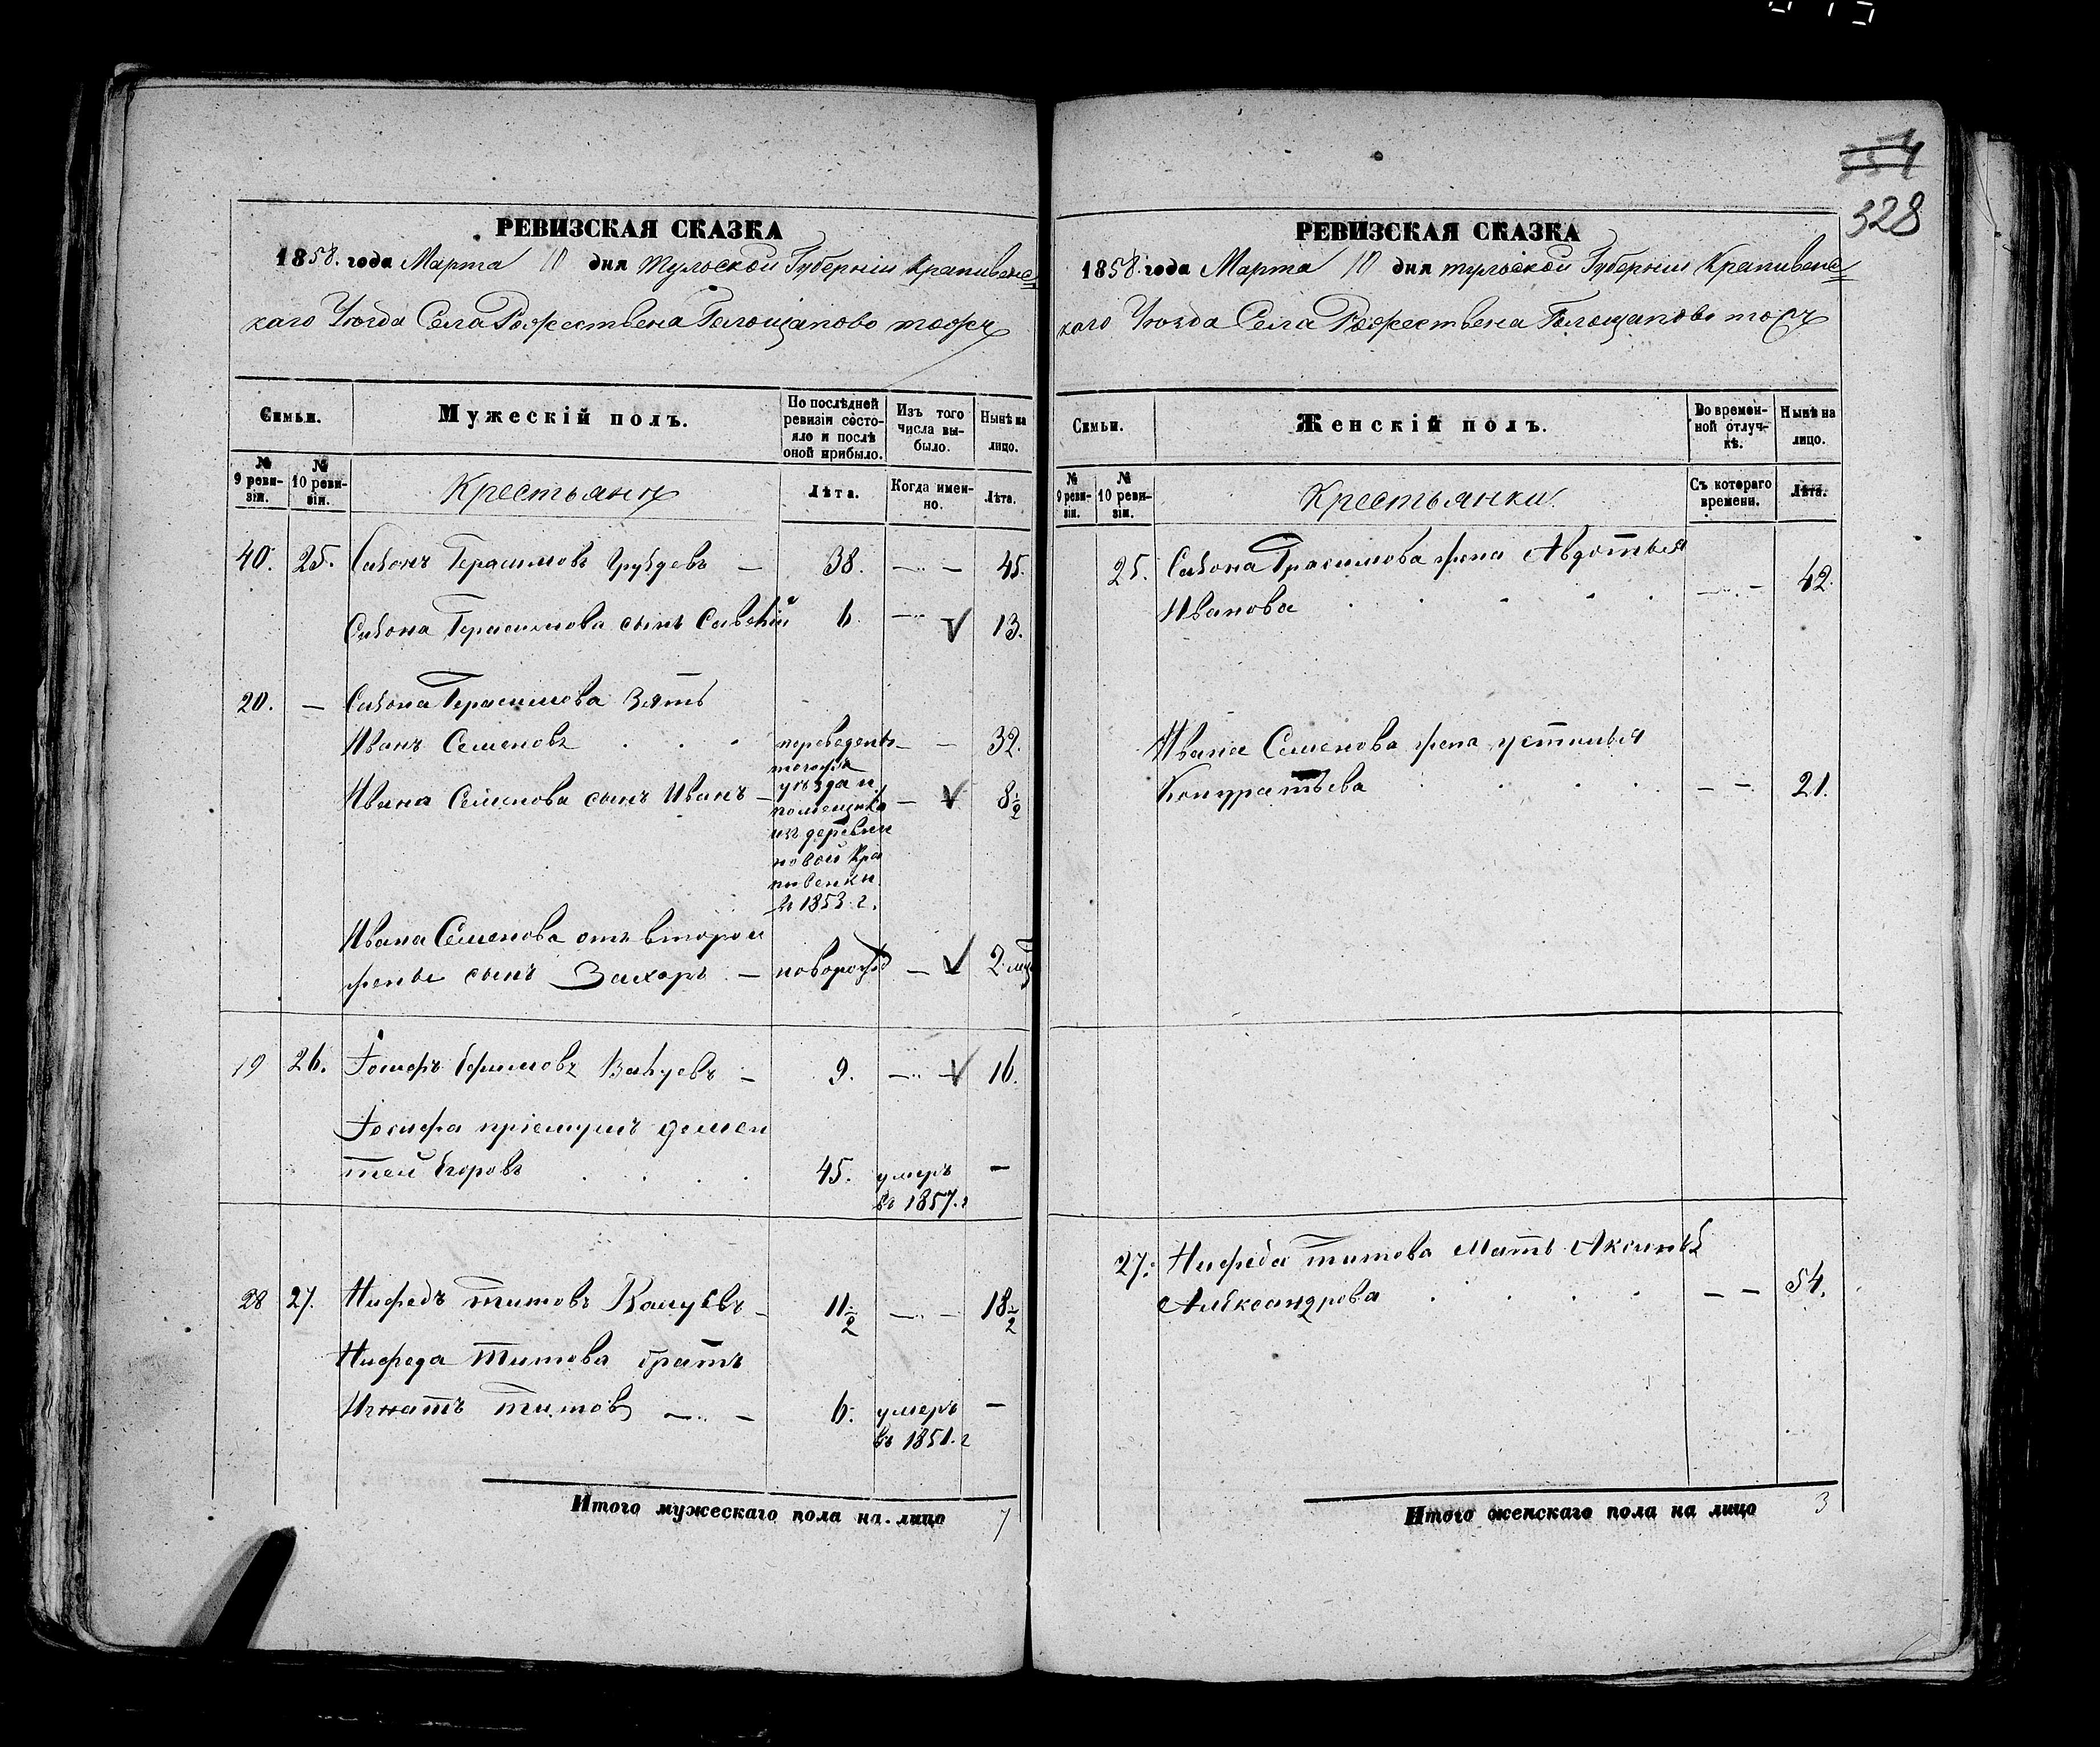 354
328
РЕВИЗСКАЯ СКАЗКА
1858. года Марта 10 дня Тульской Губерніи Крапивенс=
каго Уѣзда Села Рожествена Голощапово тожъ
Семьи.
Мужескій полъ.
По послѣдней ревизіи состояло и послѣ оной прибыло.
Изъ того числа выбыло.
Нынѣ на лицо.
№ 9 ревизіи.
№ 10 ревизіи.
Крестьяне
Лѣта.
Когда именно.
Лѣта.
40. 25. Самонъ Герасимовъ Груздевъ — 38. — 45.
Самона Герасимова сынъ Савелій 6. — V 13.
20. — Самона Герасимова Зять
Иванъ Семеновъ переведенъ — 32.
Ивана Семенова сынъ Иванъ — V 8½
тогожъ
уѣзда и
помещика
изъ деревни
новой Кра
пивенки
въ 1853. г.
Ивана Семенова отъ второй
жены сынъ Захаръ — новорожд — V 2 мѣс
19 26. Іосифъ Ефимовъ — 9. — V 16.
Іосифа пріемышъ Демен
тей Егоровъ 45. умеръ —
въ 1857. г
28 27. Нифедъ Титовъ — 11½ — 18½
Нифеда Титова братъ
Игнатъ Титовъ — 6. умеръ —
въ 1851. г
Итого мужескаго пола на лицо 7
РЕВИЗСКАЯ СКАЗКА
1858. года Марта 10 дня Тульской Губерніи Крапивенс=
каго Уѣзда Села Рожествена Голощапово тожъ
Семьи.
Женскій полъ.
Во временной отлучкѣ.
Нынѣ на лицо.
№ 9 ревизіи.
№ 10 ревизіи.
Крестьянки
Съ котораго времени.
Лѣта.
25. Самона Герасимова жена Авдотья
Иванова — 42.
Ивана Семенова жена Устинья
Кондратьева — — 21.
27. Нифеда Титова Мать Аксинья
Александрова — — 54.
Итого женскаго пола на лицо 3